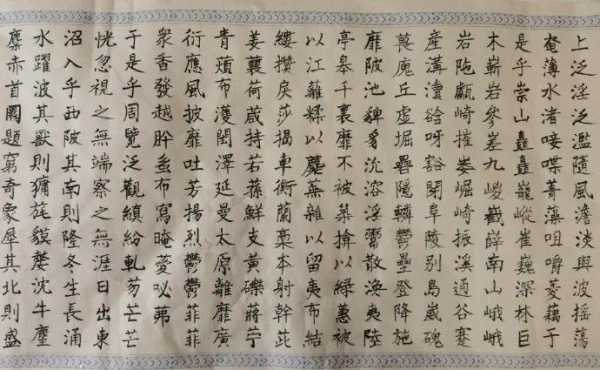 上泛淫泛濫隨風澹淡與波摇蕩
奄薄水渚唼喋菁藻咀嚼菱藕于
是乎崇山矗矗巃嵷崔巍深林巨
木嶄岩參差九嵕嶻嶭南山峨峨
岩陁甗崎摧崣崛崎振溪通谷蹇
産溝瀆谽呀豁閉阜陵别島崴磈
㟪廆丘虚堀礨隱轔鬱壘登降施
靡陂池貏豸沇溶淫鬻散渙夷陸
亭皋千裏靡不被築揜以緑蕙被
以江蘺糅以蘪蕪雜以留夷布結
縷攢戾莎揭車衡蘭槀本射幹茈
薑蘘荷葴持若蓀鮮支黄礫蔣苧
青薠布濩閎澤延曼太原離靡廣
衍應風披靡吐芳揚烈鬱鬱菲菲
衆香發越肸布寫晻薆咇茀
于是乎周覽泛觀縝紛軋芴芒芒
恍忽視之無端察之無涯日出東
沼入乎西陂其南則隆冬生長涌
水躍波其獸則㺎旄貘嫠沈牛麈
麋赤首圜題窮奇象犀其北則盛